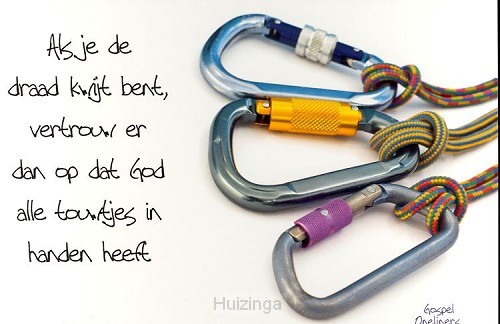 Als je de
draad kwijt bent,
vertrouw er
dan op dat God
alle touwtjes in
handen heeft
Huizinga
Gospel
Oneliners